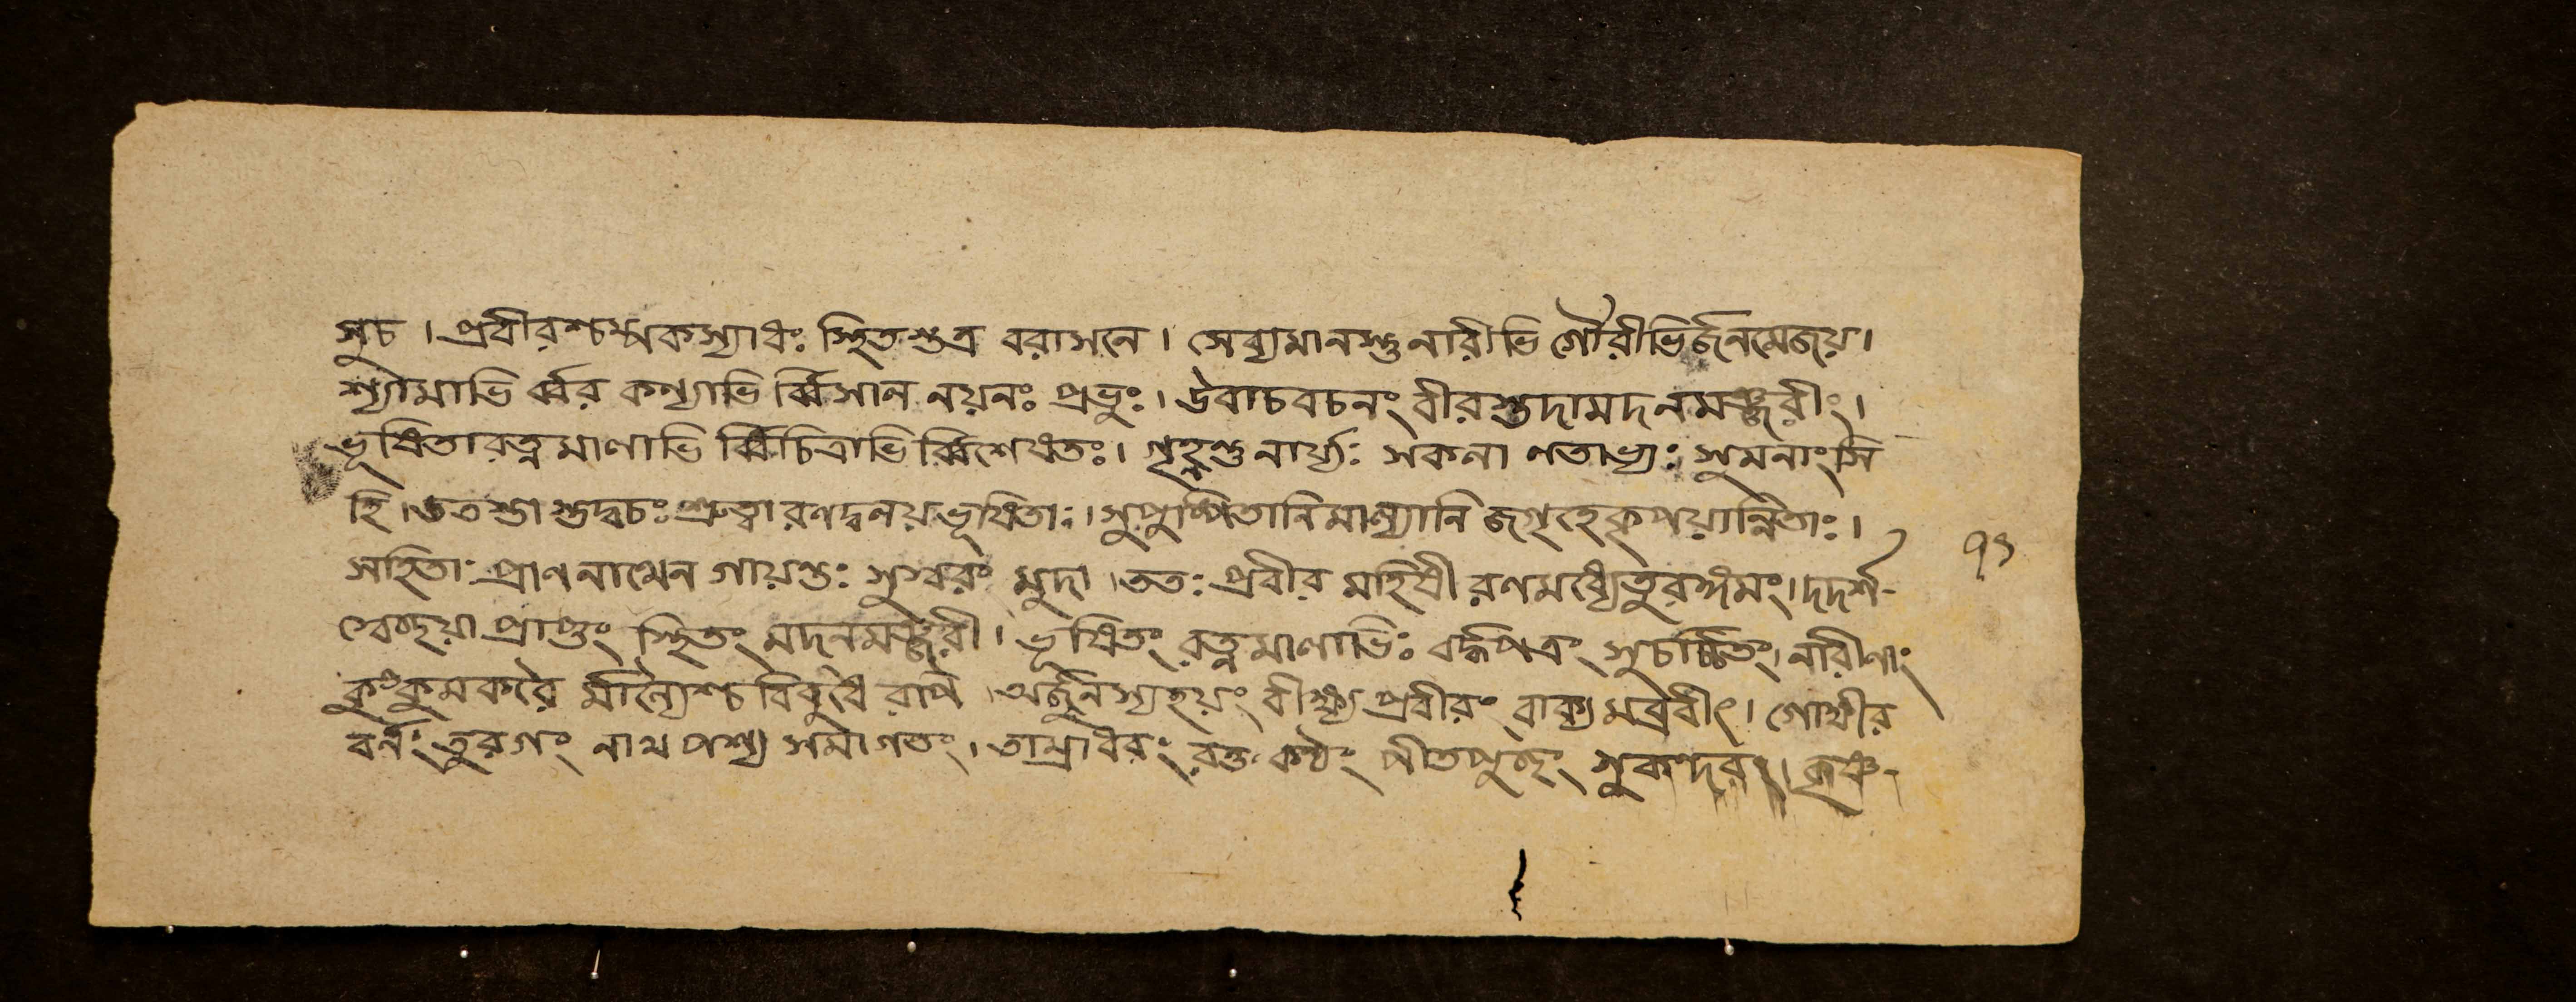 সুচ । প্রবীরশ্চম্পকস্যাধঃ স্থিতস্তত্র বরাসনে । সেব্যমানস্তু নারীভি র্গৌরীভির্জনমেজয় ।
শ্যামাভি র্ব্বর কন্যাভি র্ব্বিসাল নয়নঃ প্রভুঃ । উবাচ বচনং বীরস্তদা মদনমঞ্জরীং ।
ভূষিতা রত্নমালাভি র্ব্বিচিত্রাভি র্ব্বিশেষতঃ । গৃহ্ণন্তু নার্য্যঃ সকলা লতাভ্যঃ সুমনাংসি
হি । ততস্তা স্তদ্বচঃ শ্রুত্বা রণদ্বলয়ভূষিতাঃ । সুপুষ্পিতানি মাল্যানি জগৃহে কৃপয়ান্বিতাঃ ।
সহিতাঃ প্রাণনাথেন গায়ন্তঃ সুস্বরং মুদা । ততঃ প্রবীর মহিষী রণমধ্যে তুরঙ্গমং । দদর্শ
স্বেচ্ছয়া প্রাপ্তং স্থিতং মদনমঞ্জরী । ভূষিতং রত্নমালাভিঃ বদ্ধপত্রং সুচর্চ্চিতং । নারীণাং
কুংকুমকরৈ র্মাল্যৈশ্চ বিবুধৈ রপি । অর্জুনস্য হয়ং বীক্ষ্য প্রবীরং বাক্য মব্রবীৎ । গোক্ষীর
বর্ণং তুরগং নাথ পশ্য সমাগতং । তাম্রাধরং রক্ত কণ্ঠং পীতপুচ্ছং সুকন্দরং ।
৭১